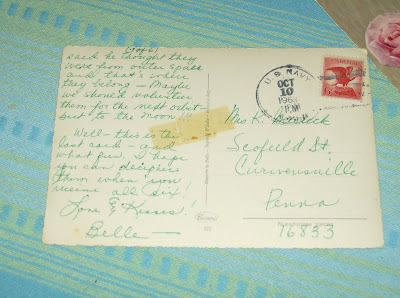 (6 of 6)
said he thought they
were from outer space
and that's where
they belong — Maybe
we should volunteer
them for the next orbit-
but to the Moon !!!
Well - this is the
last card - and
what fun. I hope
you can decipher
them when you
receive all six!
Love & Kisses!
Belle —
U.S. NAVY
OCT
10
1963
Mrs K.
Scofield St.
Curwensville
Penna
16833